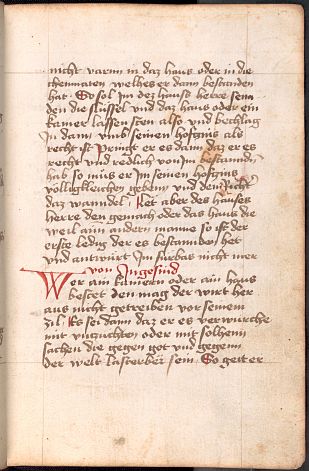 nicht varnn in daz haus oder in die
chemnaten welhes er dann bestanden
hat · So sol Im dez hauss herre senn
den die slüssel und daz haus oder ein
kamer lassen sten also und beclag
In dann umb seinen hofzins als
recht ist Pringt er es dann daz er es
recht und redlich von Im bestanndn
hab so mus er Im seinen hofzins
völligkleichen gebenn und den Richt
daz wanndel · Ret aber des hauses
herre den gemach oder das haus die
weil ainn andern manne so ist der
erste ledig der es bestannden het
und antwürt Im fürbas nicht mer
von Ingesind
Wer ain kamern oder ain haus
bestet den mag der wirt her
aus nicht getreiben vor seinem
zil · Es sei dann daz er es verwurche
mit unzuchten oder mit solhenn
sachen die gegen got und gegenn
der welt lasterber sein · So get er